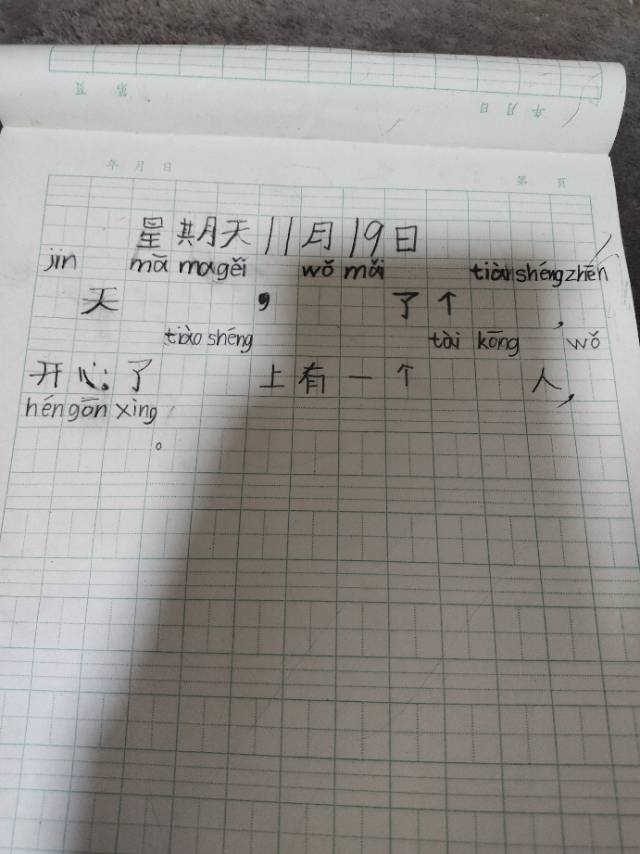 年 月 日 第 页
年 月 日 第 页
星期天11月19日
jīn mā ma gěi wǒ mǎi tiào shéng zhēn
天 , 了个 ,
tiào shéng tài kōng wǒ
开心了 上有一个 人,
hěn gāo xìng
。